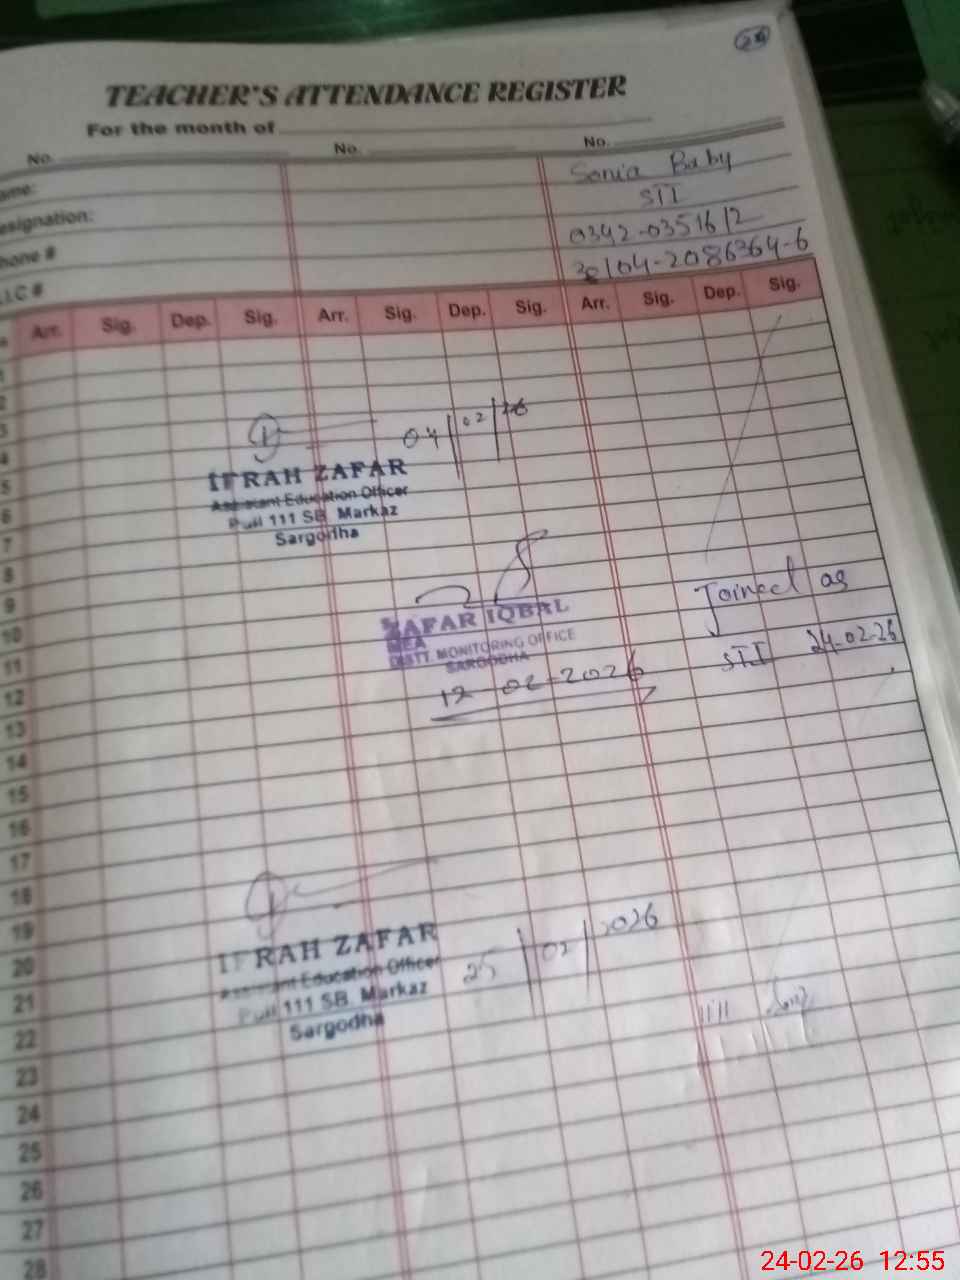 24
TEACHER'S ATTENDANCE REGISTER
For the month of
No. No. No.
ame: Sonia Baby
esignation: STI
hone # 0342-0351612
I.C # 38104-2086364-6
Arr. Sig. Dep. Sig. Arr. Sig. Dep. Sig. Arr. Sig. Dep. Sig.
1
2
3
4 04/02/26
5 IFRAH ZAFAR
6 Assistant Education Officer
Pull 111 SB. Markaz
7 Sargodha
8
9
10 ZAFAR IQBAL Joined as
MEA
11 DISTT MONITORING OFFICE STI 24-02-26
SARGODHA
12 12-02-2026
13
14
15
16
17
18
19
20 IFRAH ZAFAR 25/02/2026
21 Assistant Education Officer
Pull 111 SB. Markaz
22 Sargodha
23
24
25
26
27
28
24-02-26 12:55